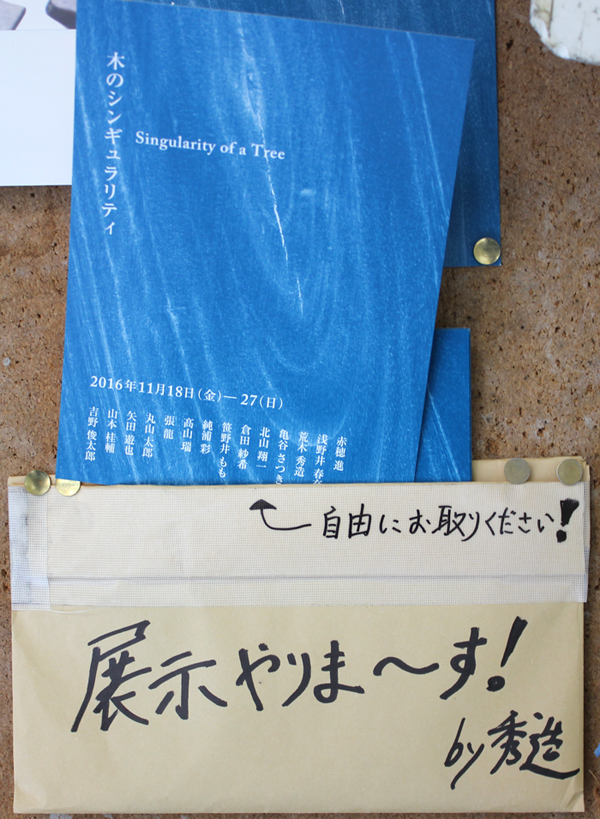 木のシンギュラリティ
Singularity of a Tree
2016年11月18日(金)— 27(日)
赤穂 進
浅野井 春
荒木 秀造
亀谷 さつき
北山 翔一
倉田 紗希
笹野井 もも
純浦 彩
高山 瑞
張 龍
丸山 太郎
矢田 遊也
山本 桂輔
吉野 俊太郎
自由にお取りください!
展示やりま〜す!
by 秀造